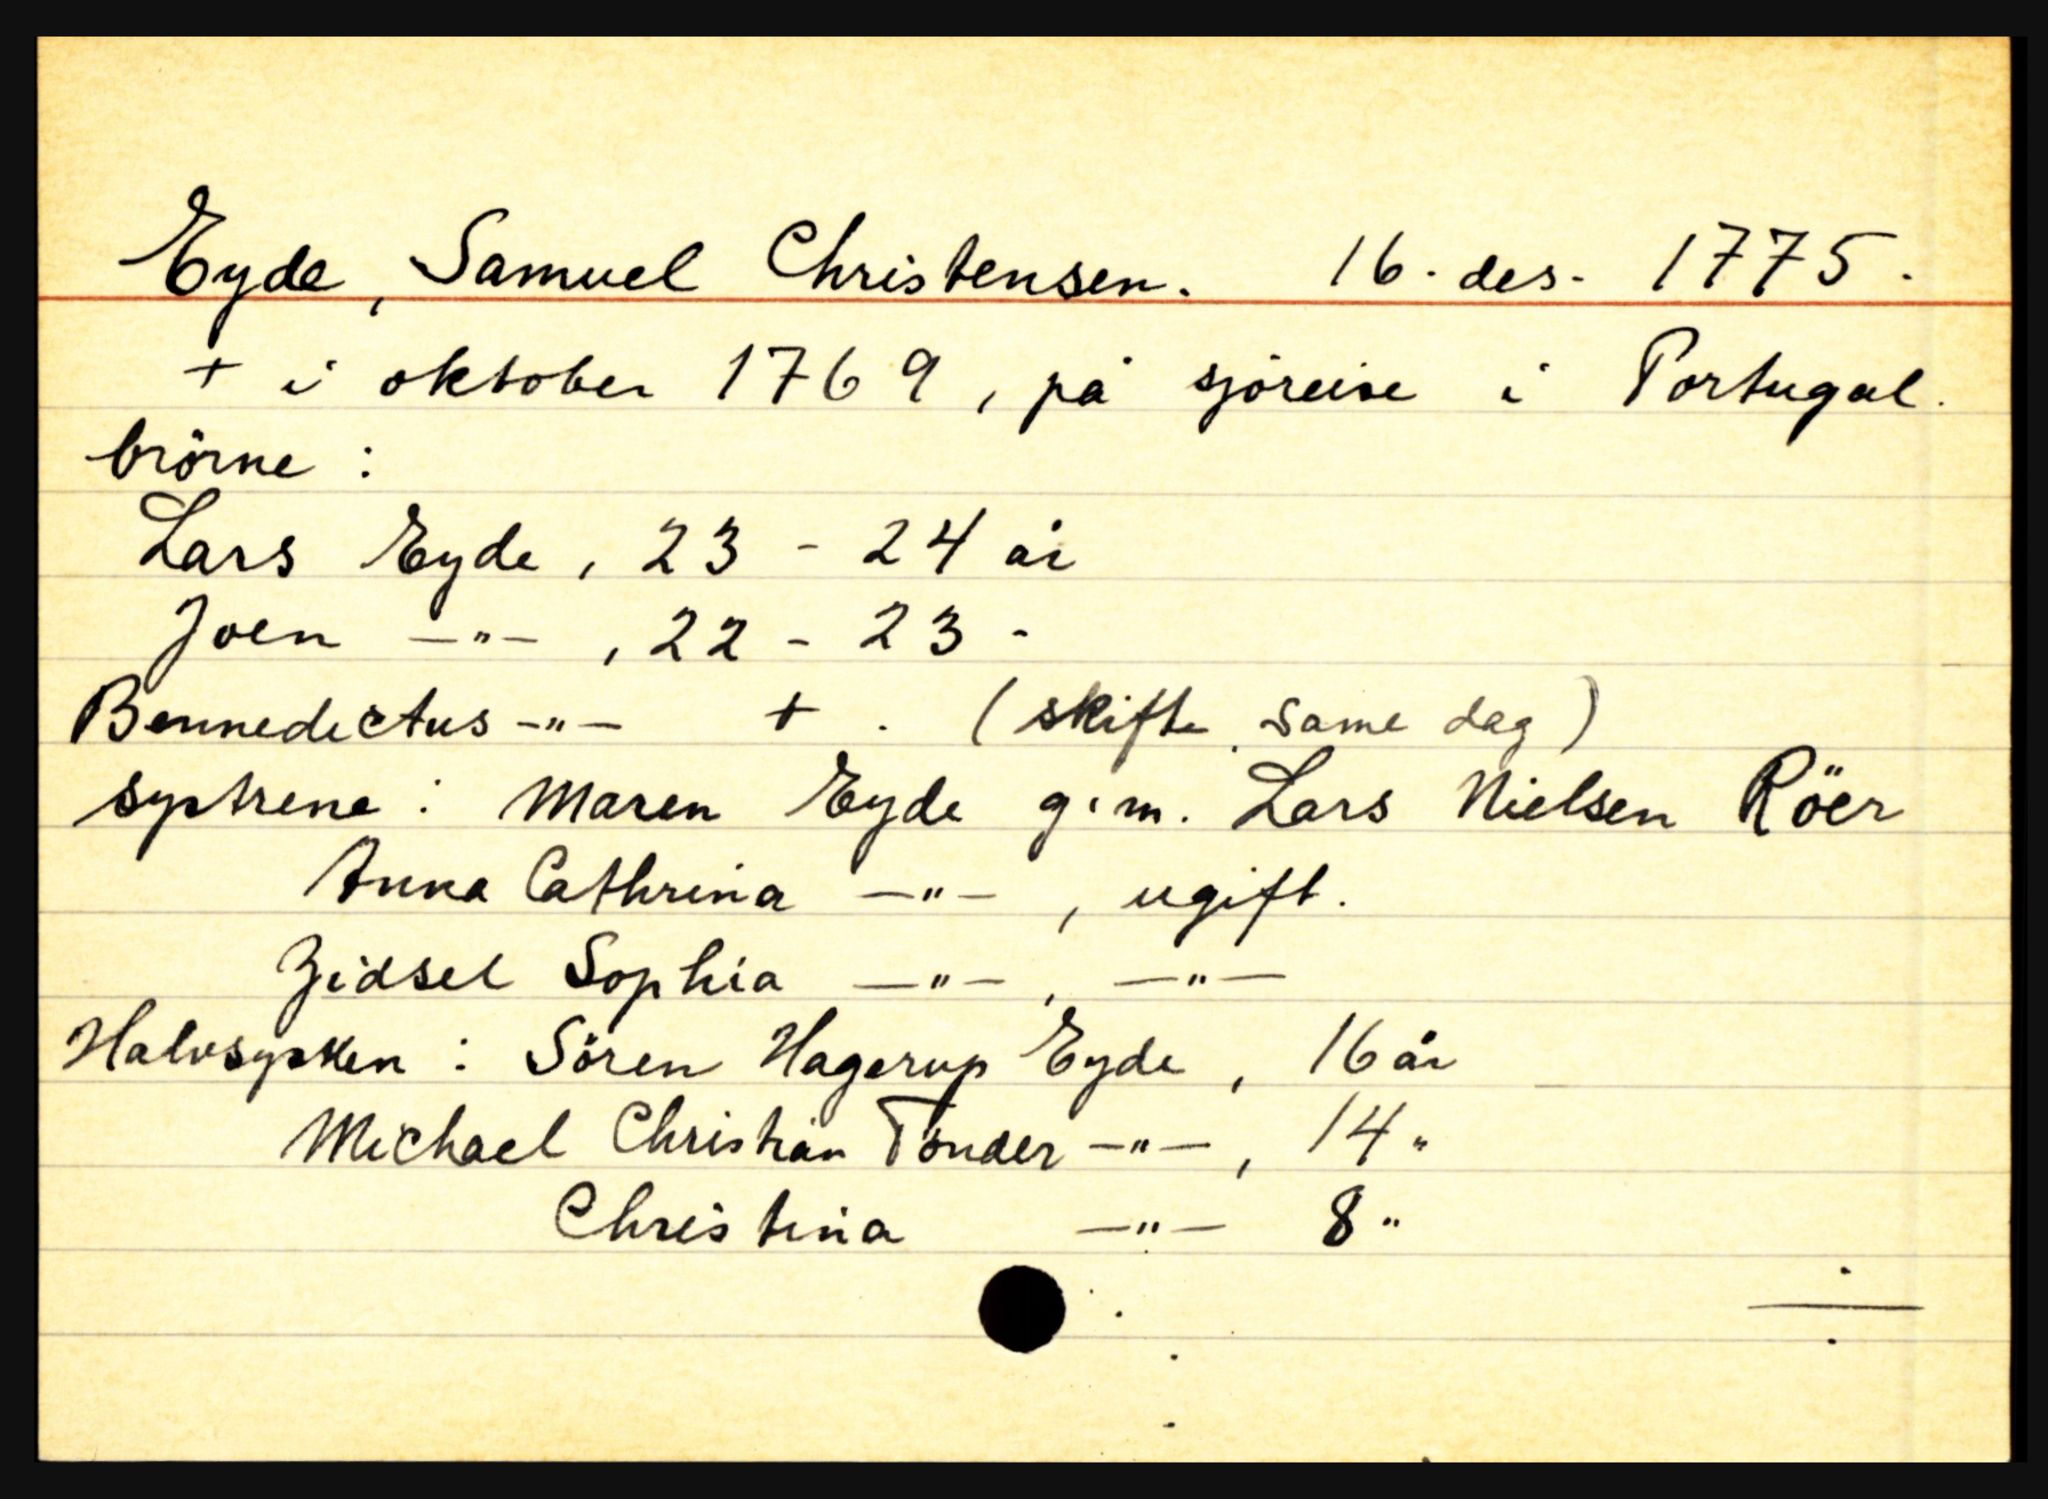 Eyde, Samuel Christensen. 16. des. 1775.
+ i oktober 1769, på sjöreise i Portugal.
brörne :
Lars Eyde, 23 - 24 år
Joen —"— , 22 - 23 -
Bennedictus —"— + . (skifte same dag)
systrene : Maren Eyde g.m. Lars Nielsen Röer
Anna Cathrina —"— , ugift.
Zidsel Sophia —"— , —"—
Halvsysken : Sören Hagerup Eyde, 16 år
Michael Christian Tönder —"— , 14 "
Christina —"— 8 "
÷